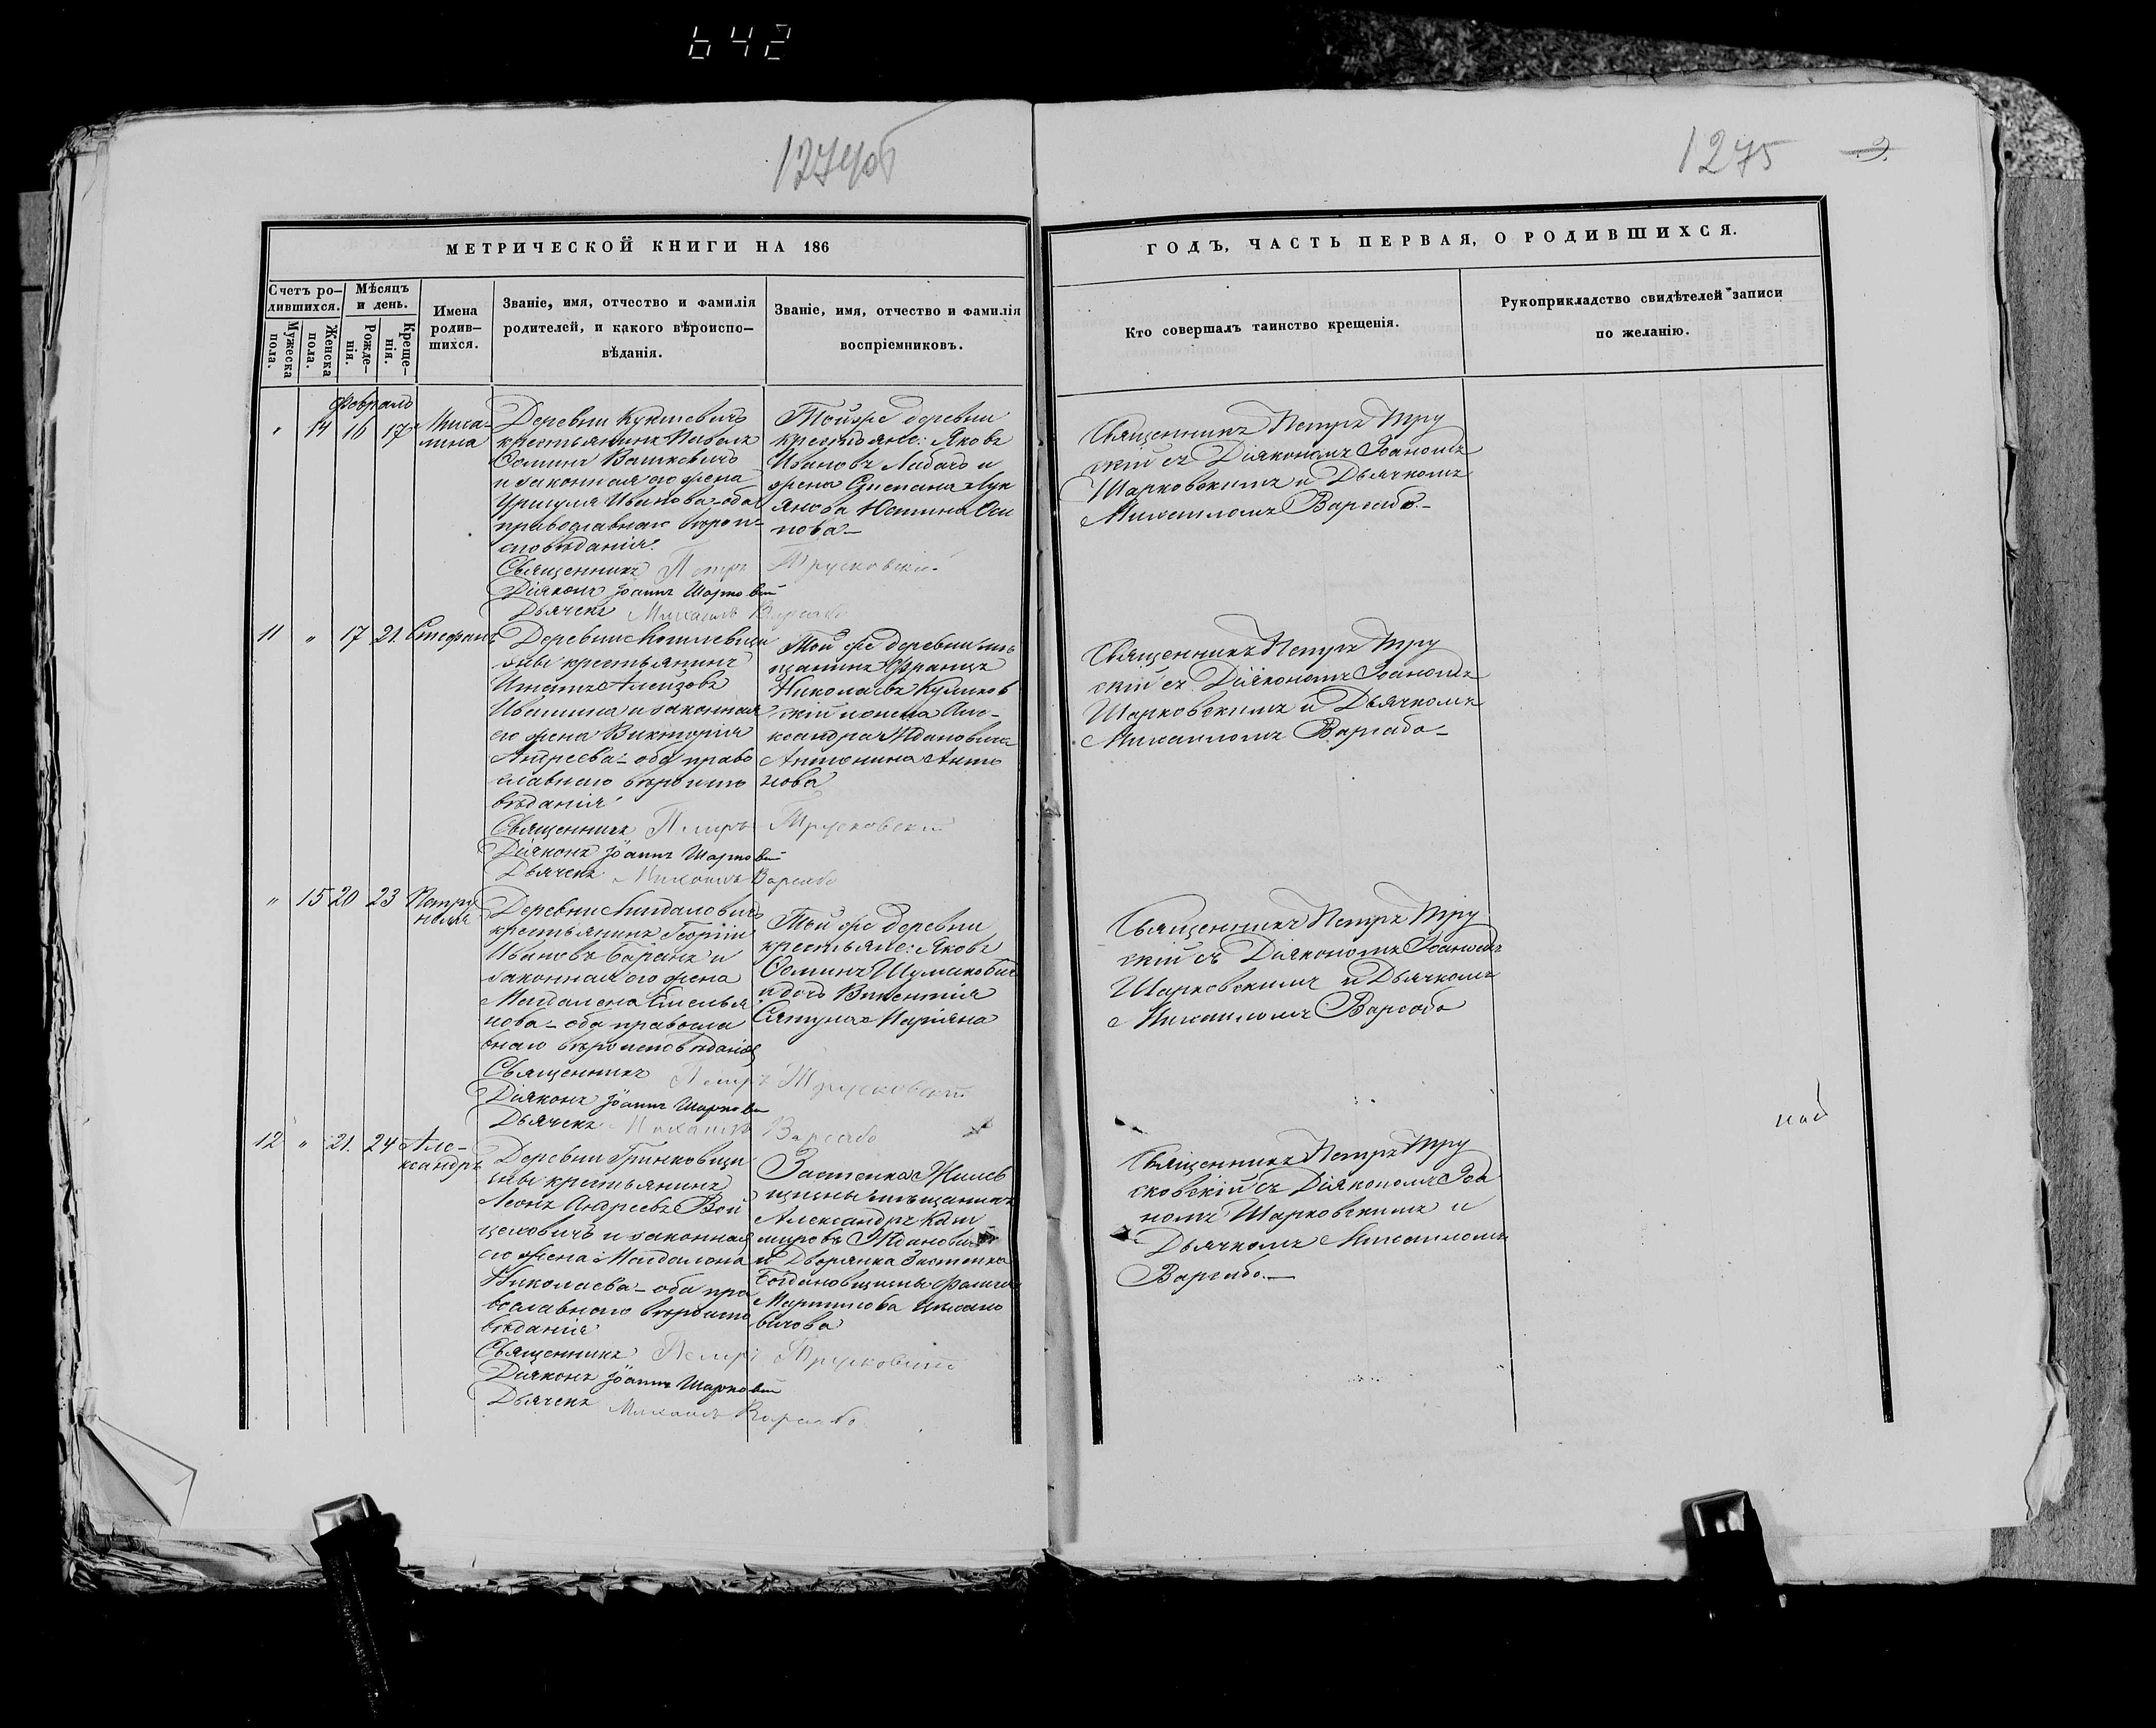 642
1274об
1275
9.
МЕТРИЧЕСКОЙ КНИГИ НА 186
Счетъ ро-
дившихся.
Мужеска
пола.
Женска
пола.
Мѣсяцъ
и день.
Рожде-
нія.
Креще-
нія.
Имена
родив-
шихся.
Званіе, имя, отчество и фамилія
родителей, и какого вѣроиспо-
вѣданія.
Званіе, имя, отчество и фамилія
воспріемниковъ.
ГОДЪ, ЧАСТЬ ПЕРВАЯ, О РОДИВШИХСЯ.
Кто совершалъ таинство крещенія.
Рукоприкладство свидѣтелей записи
по желанію.
Февраль
" 14 16 17
Миха-
лина
Деревни
крестьянинъ
Осминъ Вашкевичъ
и законная его жена
Уршуля Иванова - оба
православнаго вѣрои-
споведанія.
Священникъ Петръ Трусковскій
Діяконъ Іоаннъ Шарковскій
Дьячекъ Михаилъ Варсабо
Тойже деревни
крестьяне: Яковъ
Ивановъ Лабачъ и
жена Степана Лук
янова Юстина Оси
пова -
Священникъ Петръ Тру
скій съ Діякономъ Іоаномъ
Шарковскимъ и Дьячкомъ
Михаиломъ Варсабо. -
11 " 17 21. Стефанъ
Деревни
крестьянинъ
Игнатъ Алейзовъ
Ивашина и законная
его жена Викторія
Андреева - оба право
славнаго вѣроиспо
вѣданія
Священникъ Петръ Трусковскій
Діяконъ Іоаннъ Шарковскій
Дьячекъ Михаилъ Варсабо
Той же деревни мѣ
щанинъ Францъ
Николаевъ Куликов
скій и жена Але-
ксандра Ждановича
Антонина Анто
нова
Священникъ Петръ Тру
скій съ Діякономъ Іоаномъ
Шарковскимъ и Дьячкомъ
Михаиломъ Варсабо -
" 15 20 23 Петро
неля
Деревни
крестьянинъ Георгій
Ивановъ Баранъ и
законная его жена
Магдалена Емелья
нова - оба правосла
внаго вѣроисповѣданія
Священникъ Петръ Трусковскій
Діяконъ Іоаннъ Шарковскій
Дьячекъ Михаилъ Варсабо
Той же деревни
крестьяне: Яковъ
Осминъ Шумаковичъ
и дочь Викентія
Маріяна
Священникъ Петръ Тру
скій съ Діякономъ Іоаномъ
Шарковскимъ и Дьячкомъ
Михаиломъ Варсабо
12 " 21. 24 Але-
ксандръ
Деревни Гринковщи
зны крестьянинъ
Леонъ Андреевъ Вой
целовичъ и законная
его жена Магдалена
Николаева - оба пра
вославнаго вѣроиспо
вѣданія
Священникъ Петръ Трусковскій
Діяконъ Іоаннъ Шарковскій
Дьячекъ Михаилъ Варсабо
Застенка
мѣщанинъ
Александръ Кази
мировъ Ждановичъ
и Дворянка Застенка
Богдановщизны
Мартинова
вичова
Священникъ Петръ Тру
сковскій съ Діякономъ Іоа
номъ Шарковскимъ и
Дьячкомъ Михаиломъ
Варсабо. -